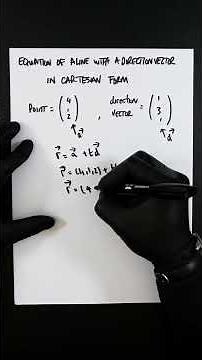 EQUATION OF A LINE WITH A DIRECTION VECTOR
IN CARTESIAN FORM
POINT = (4 1 2) , direction VECTOR = (1 3 1)
a d
r = a + td
r = (4,1,2) + t(
r = (4